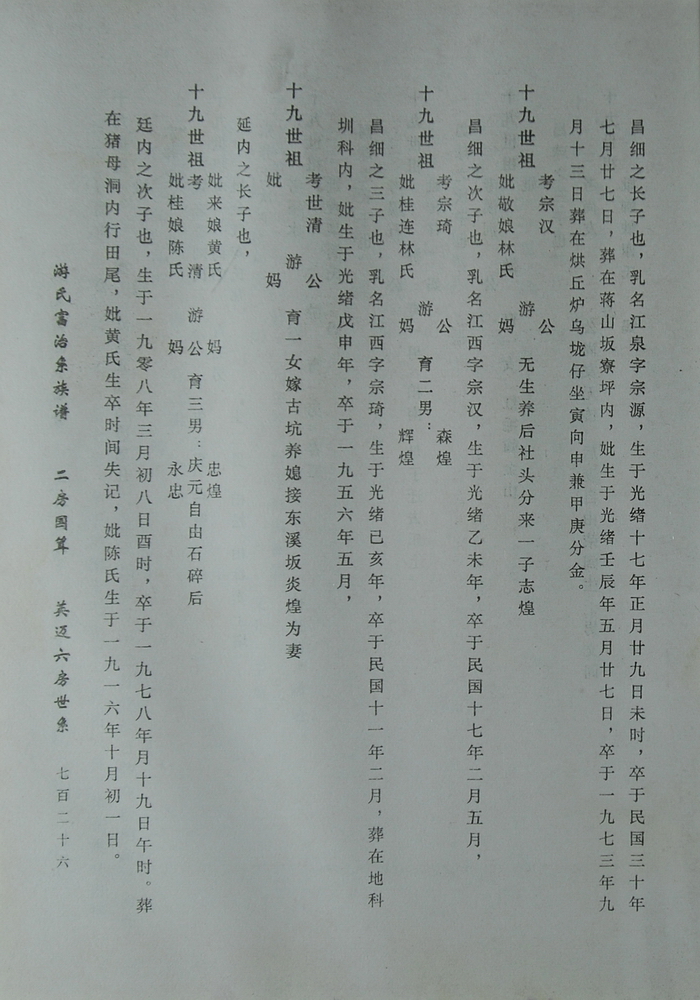 昌细之长子也，乳名江泉字宗源，生于光绪十七年正月廿九日未时，卒于民国三十年
七月廿七日，葬在蒋山坂寮坪内，妣生于光绪壬辰年五月廿七日，卒于一九七三年九
月十三日葬在烘丘炉乌垅仔坐寅向申兼甲庚分金。
十九世祖
考宗汉 公
游
妣敬娘林氏 妈
无生养后社头分来一子志煌
昌细之次子也，乳名江西字宗汉，生于光绪乙未年，卒于民国十七年二月五月，
十九世祖
考宗琦 公
游
妣桂连林氏 妈
育二男：
森煌
辉煌
昌细之三子也，乳名江西字宗琦，生于光绪已亥年，卒于民国十一年二月，葬在地科
圳科内，妣生于光绪戊申年，卒于一九五六年五月，
十九世祖
考世清 公
游
妣 妈
育一女嫁古坑养媳接东溪坂炎煌为妻
延内之长子也，
十九世祖
妣来娘黄氏 妈
考 清 游 公
妣桂娘陈氏 妈
育三男：
忠煌
庆元自由石碎后
永忠
廷内之次子也，生于一九零八年三月初八日酉时，卒于一九七八年月十九日午时。葬
在猪母洞内行田尾，妣黄氏生卒时间失记，妣陈氏生于一九一六年十月初一日。
游氏富治系族谱 二房国茸 英迈六房世系 七百二十六